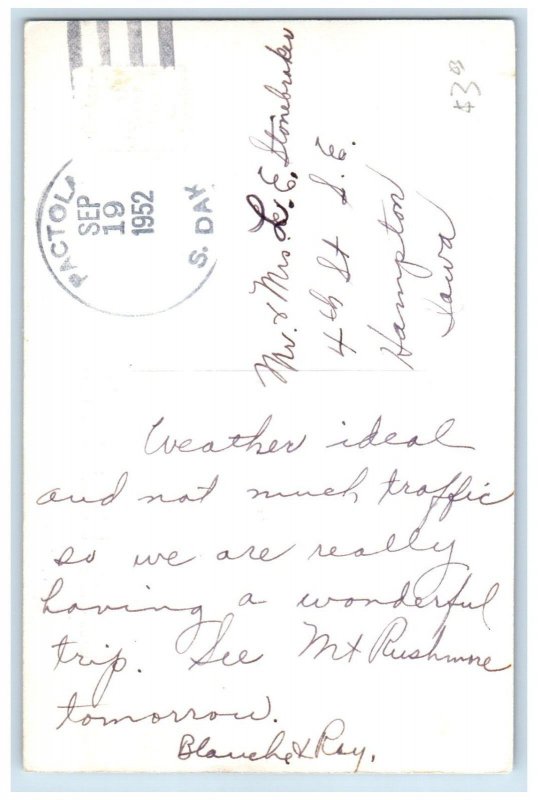 PACTOLA
SEP
19
1952
S. DAK
$3.00
Mr. & Mrs. L. E. Stonebraker
4th St S. E.
Hampton
Iowa
Weather ideal
and not much traffic
so we are really
having a wonderful
trip. See Mt Rushmore
tomorrow.
Blanche & Ray.